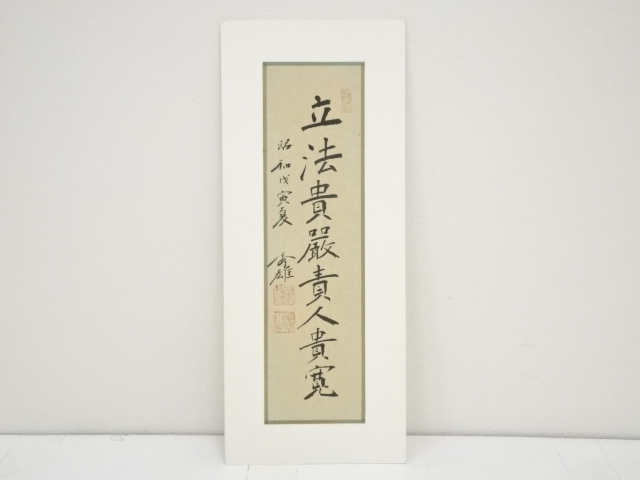 立法貴嚴責人貴寬
昭和戊寅夏
秀雄